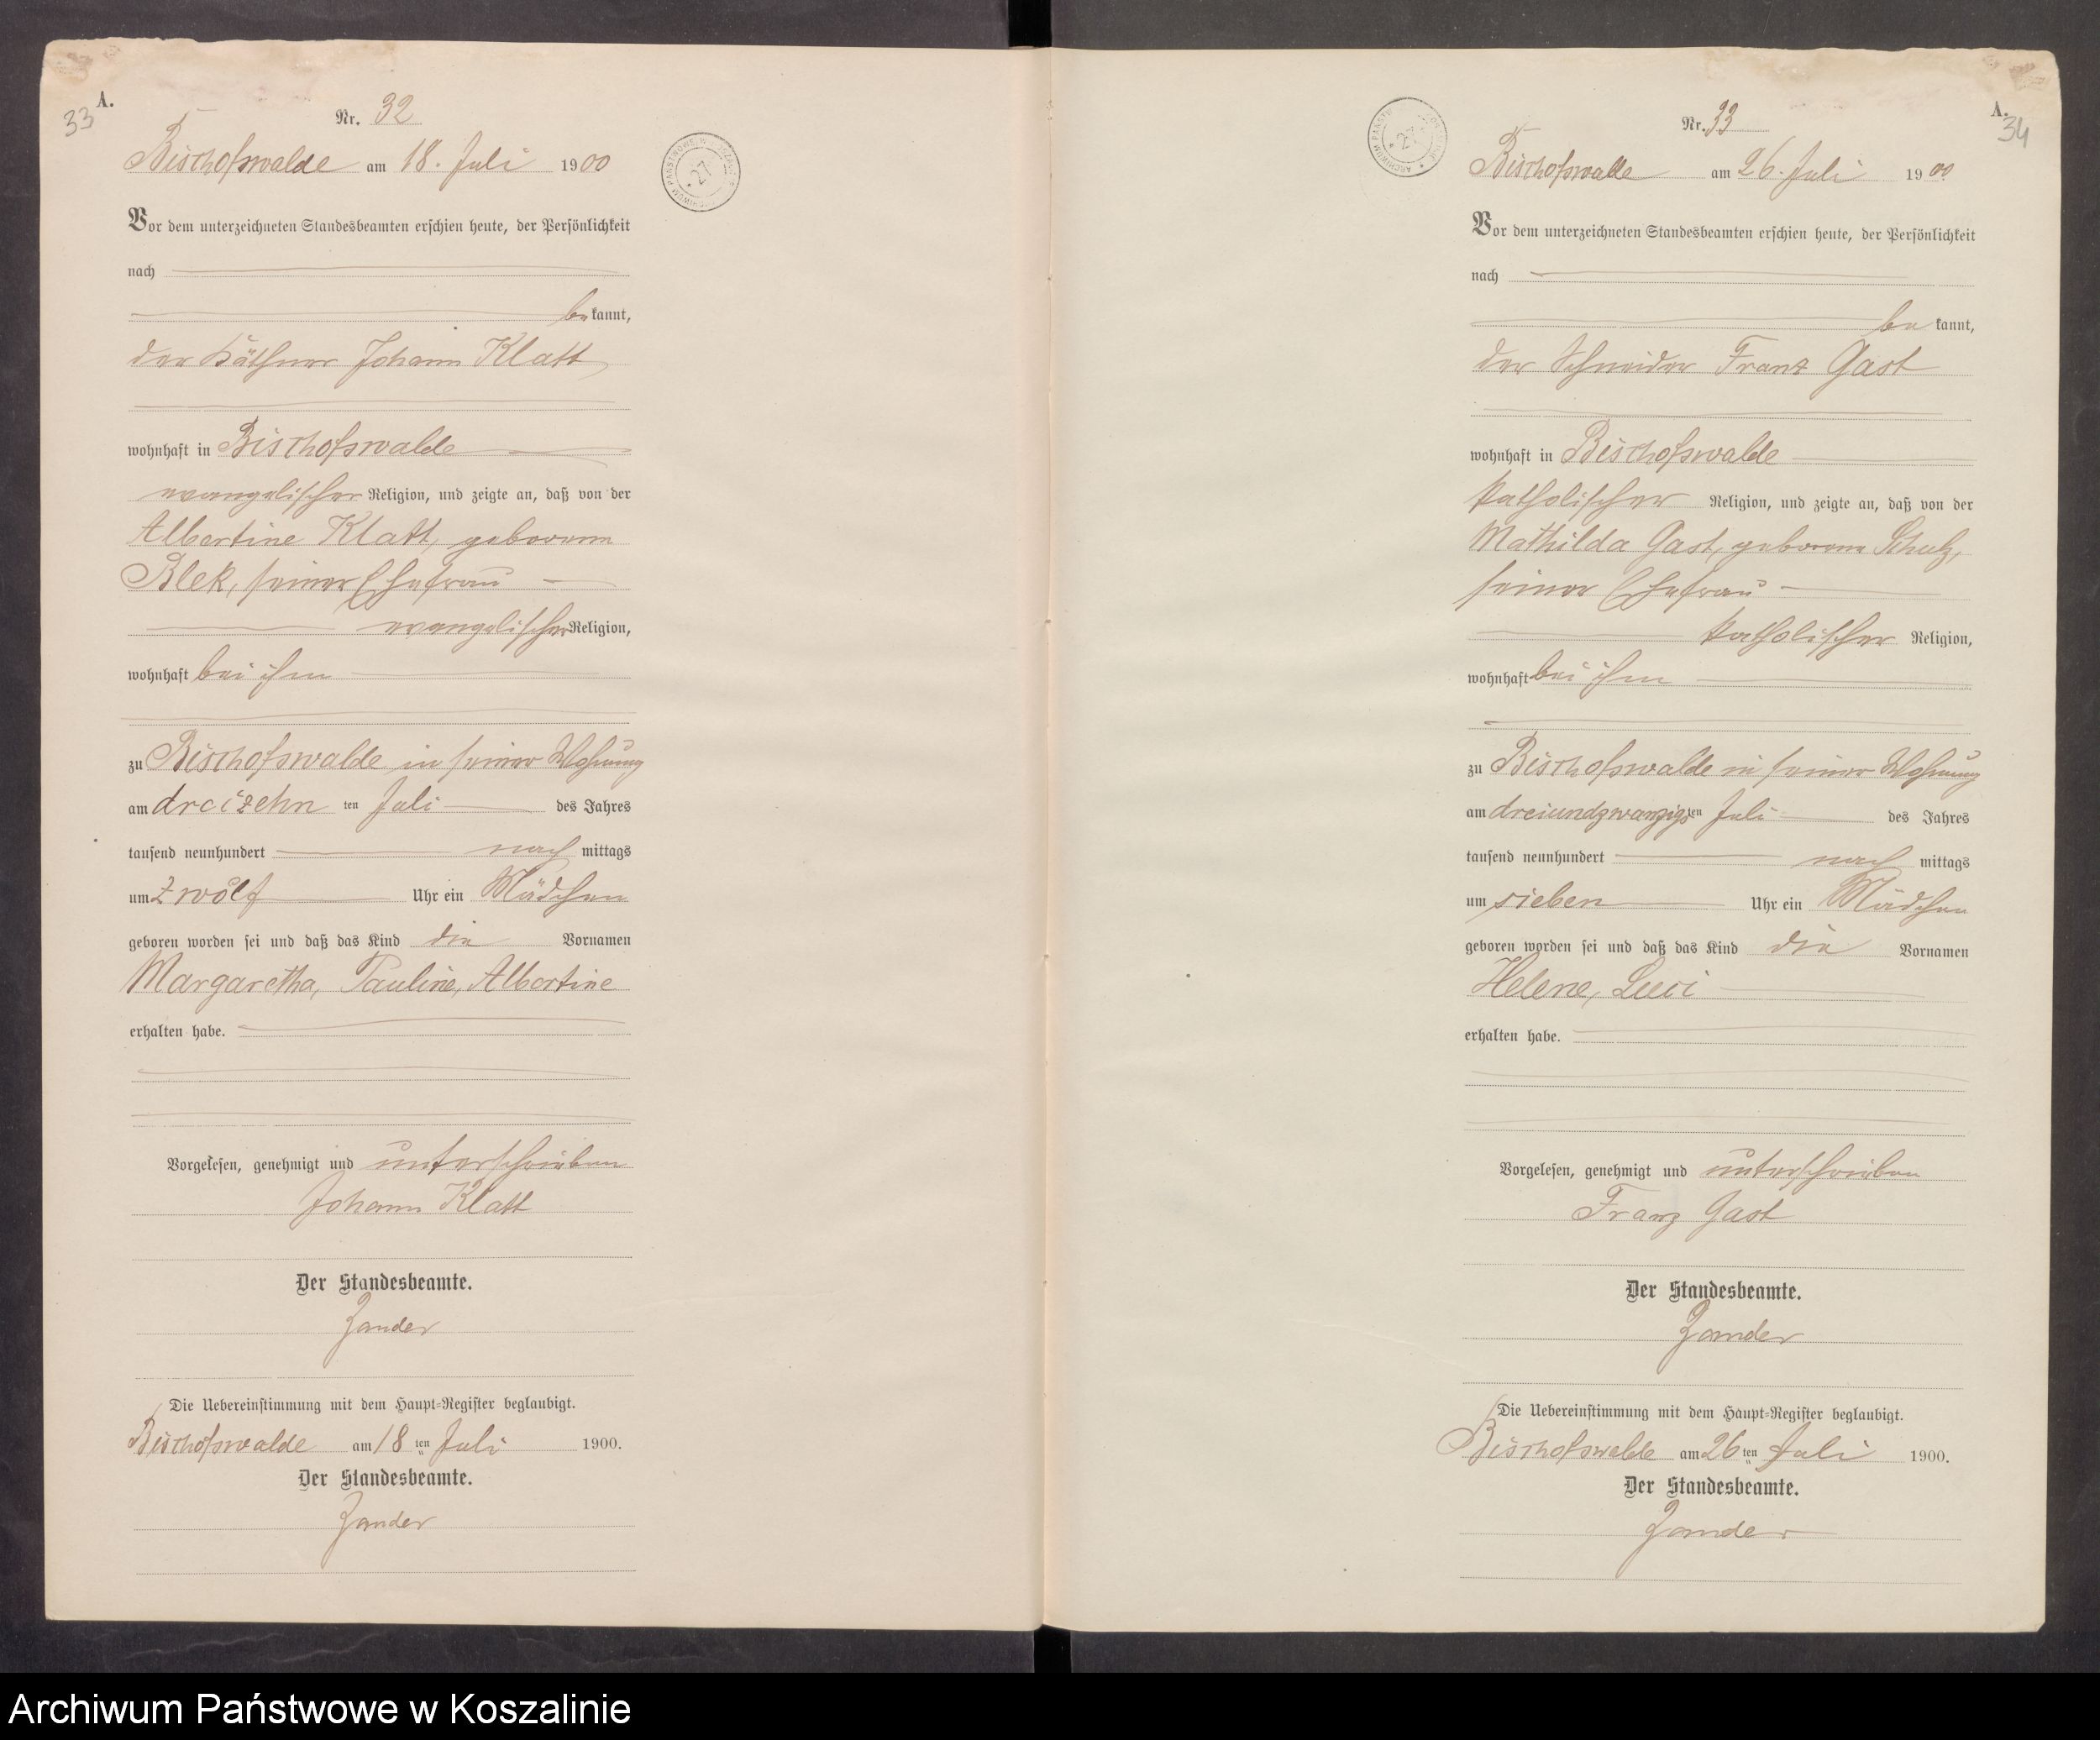 A.
33
Nr. 32
Bischofswalde am 18. Juli 1900
Vor dem unterzeichneten Standesbeamten erschien heute, der Persönlichkeit
nach
bekannt,
der Käthner Johann Klatt,
wohnhaft in Bischofswalde
evangelischer Religion, und zeigte an, daß von der
Albertine Klatt, geborene
Blek, seiner Ehefrau
evangelischer Religion,
wohnhaft bei ihm
zu Bischofswalde in seiner Wohnung
am dreizehn ten Juli des Jahres
tausend neunhundert nach mittags
um zwölf Uhr ein Mädchen
geboren worden sei und daß das Kind die Vornamen
Margaretha, Pauline, Albertine
erhalten habe.
Vorgelesen, genehmigt und unterschrieben
Johann Klatt
Der Standesbeamte.
Zander
Die Uebereinstimmung mit dem Haupt-Register beglaubigt.
Bischofswalde am 18 ten Juli 1900.
Der Standesbeamte.
Zander
27
27
A.
34
Nr. 33
Bischofswalde am 26. Juli 1900
Vor dem unterzeichneten Standesbeamten erschien heute, der Persönlichkeit
nach
be kannt,
der Schneider Franz Gast
wohnhaft in Bischofswalde
katholischer Religion, und zeigte an, daß von der
Mathilda Gast, geborene Schulz,
seiner Ehefrau
katholischer Religion,
wohnhaft bei ihm
zu Bischofswalde in seiner Wohnung
am dreiundzwanzigsten Juli des Jahres
tausend neunhundert nach mittags
um sieben Uhr ein Mädchen
geboren worden sei und daß das Kind die Vornamen
Helene, Luci
erhalten habe.
Vorgelesen, genehmigt und unterschrieben
Franz Gast
Der Standesbeamte.
Zander
Die Uebereinstimmung mit dem Haupt-Register beglaubigt.
Bischofswalde am 26 ten Juli 1900.
Der Standesbeamte.
Zander
Archiwum Państwowe w Koszalinie